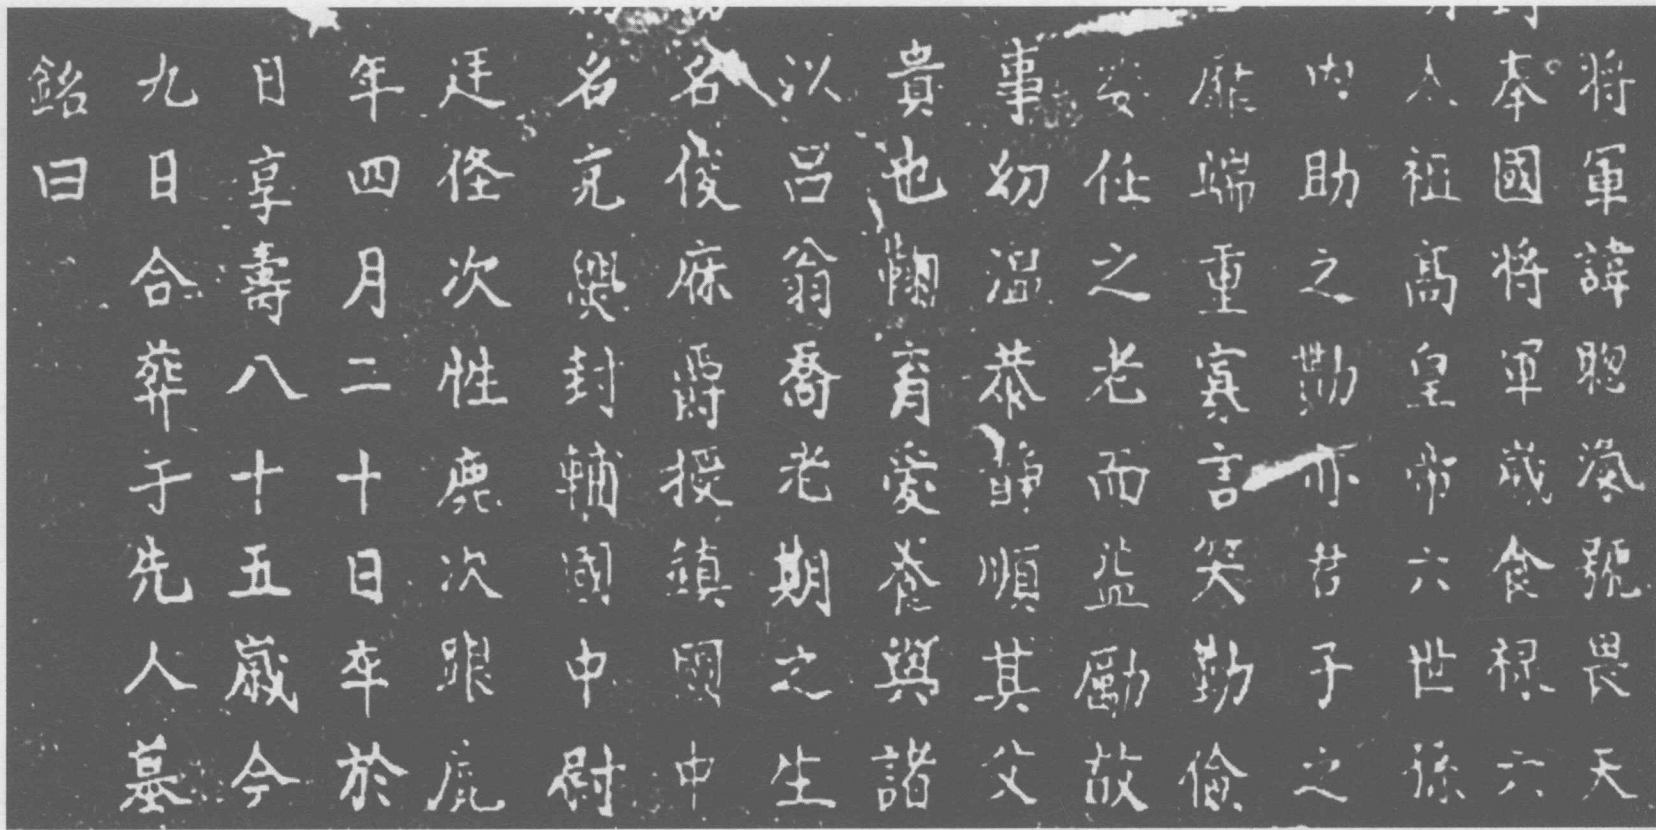 將軍諱聰㴻號畏天
奉國將軍歲食祿六
人祖高皇帝六世孫
內助之勤亦君子之
龐端重寡言笑勤儉
委任之老而益勵故
事幼溫恭靜順其父
貴也鞠育愛養與諸
以呂翁喬老期之生
名俊庥爵授鎮國中
名充爂封輔國中尉
廷烇次性鹿次跟鹿
年四月二十日卒於
日享壽八十五歲今
九日合葬于先人墓
銘曰